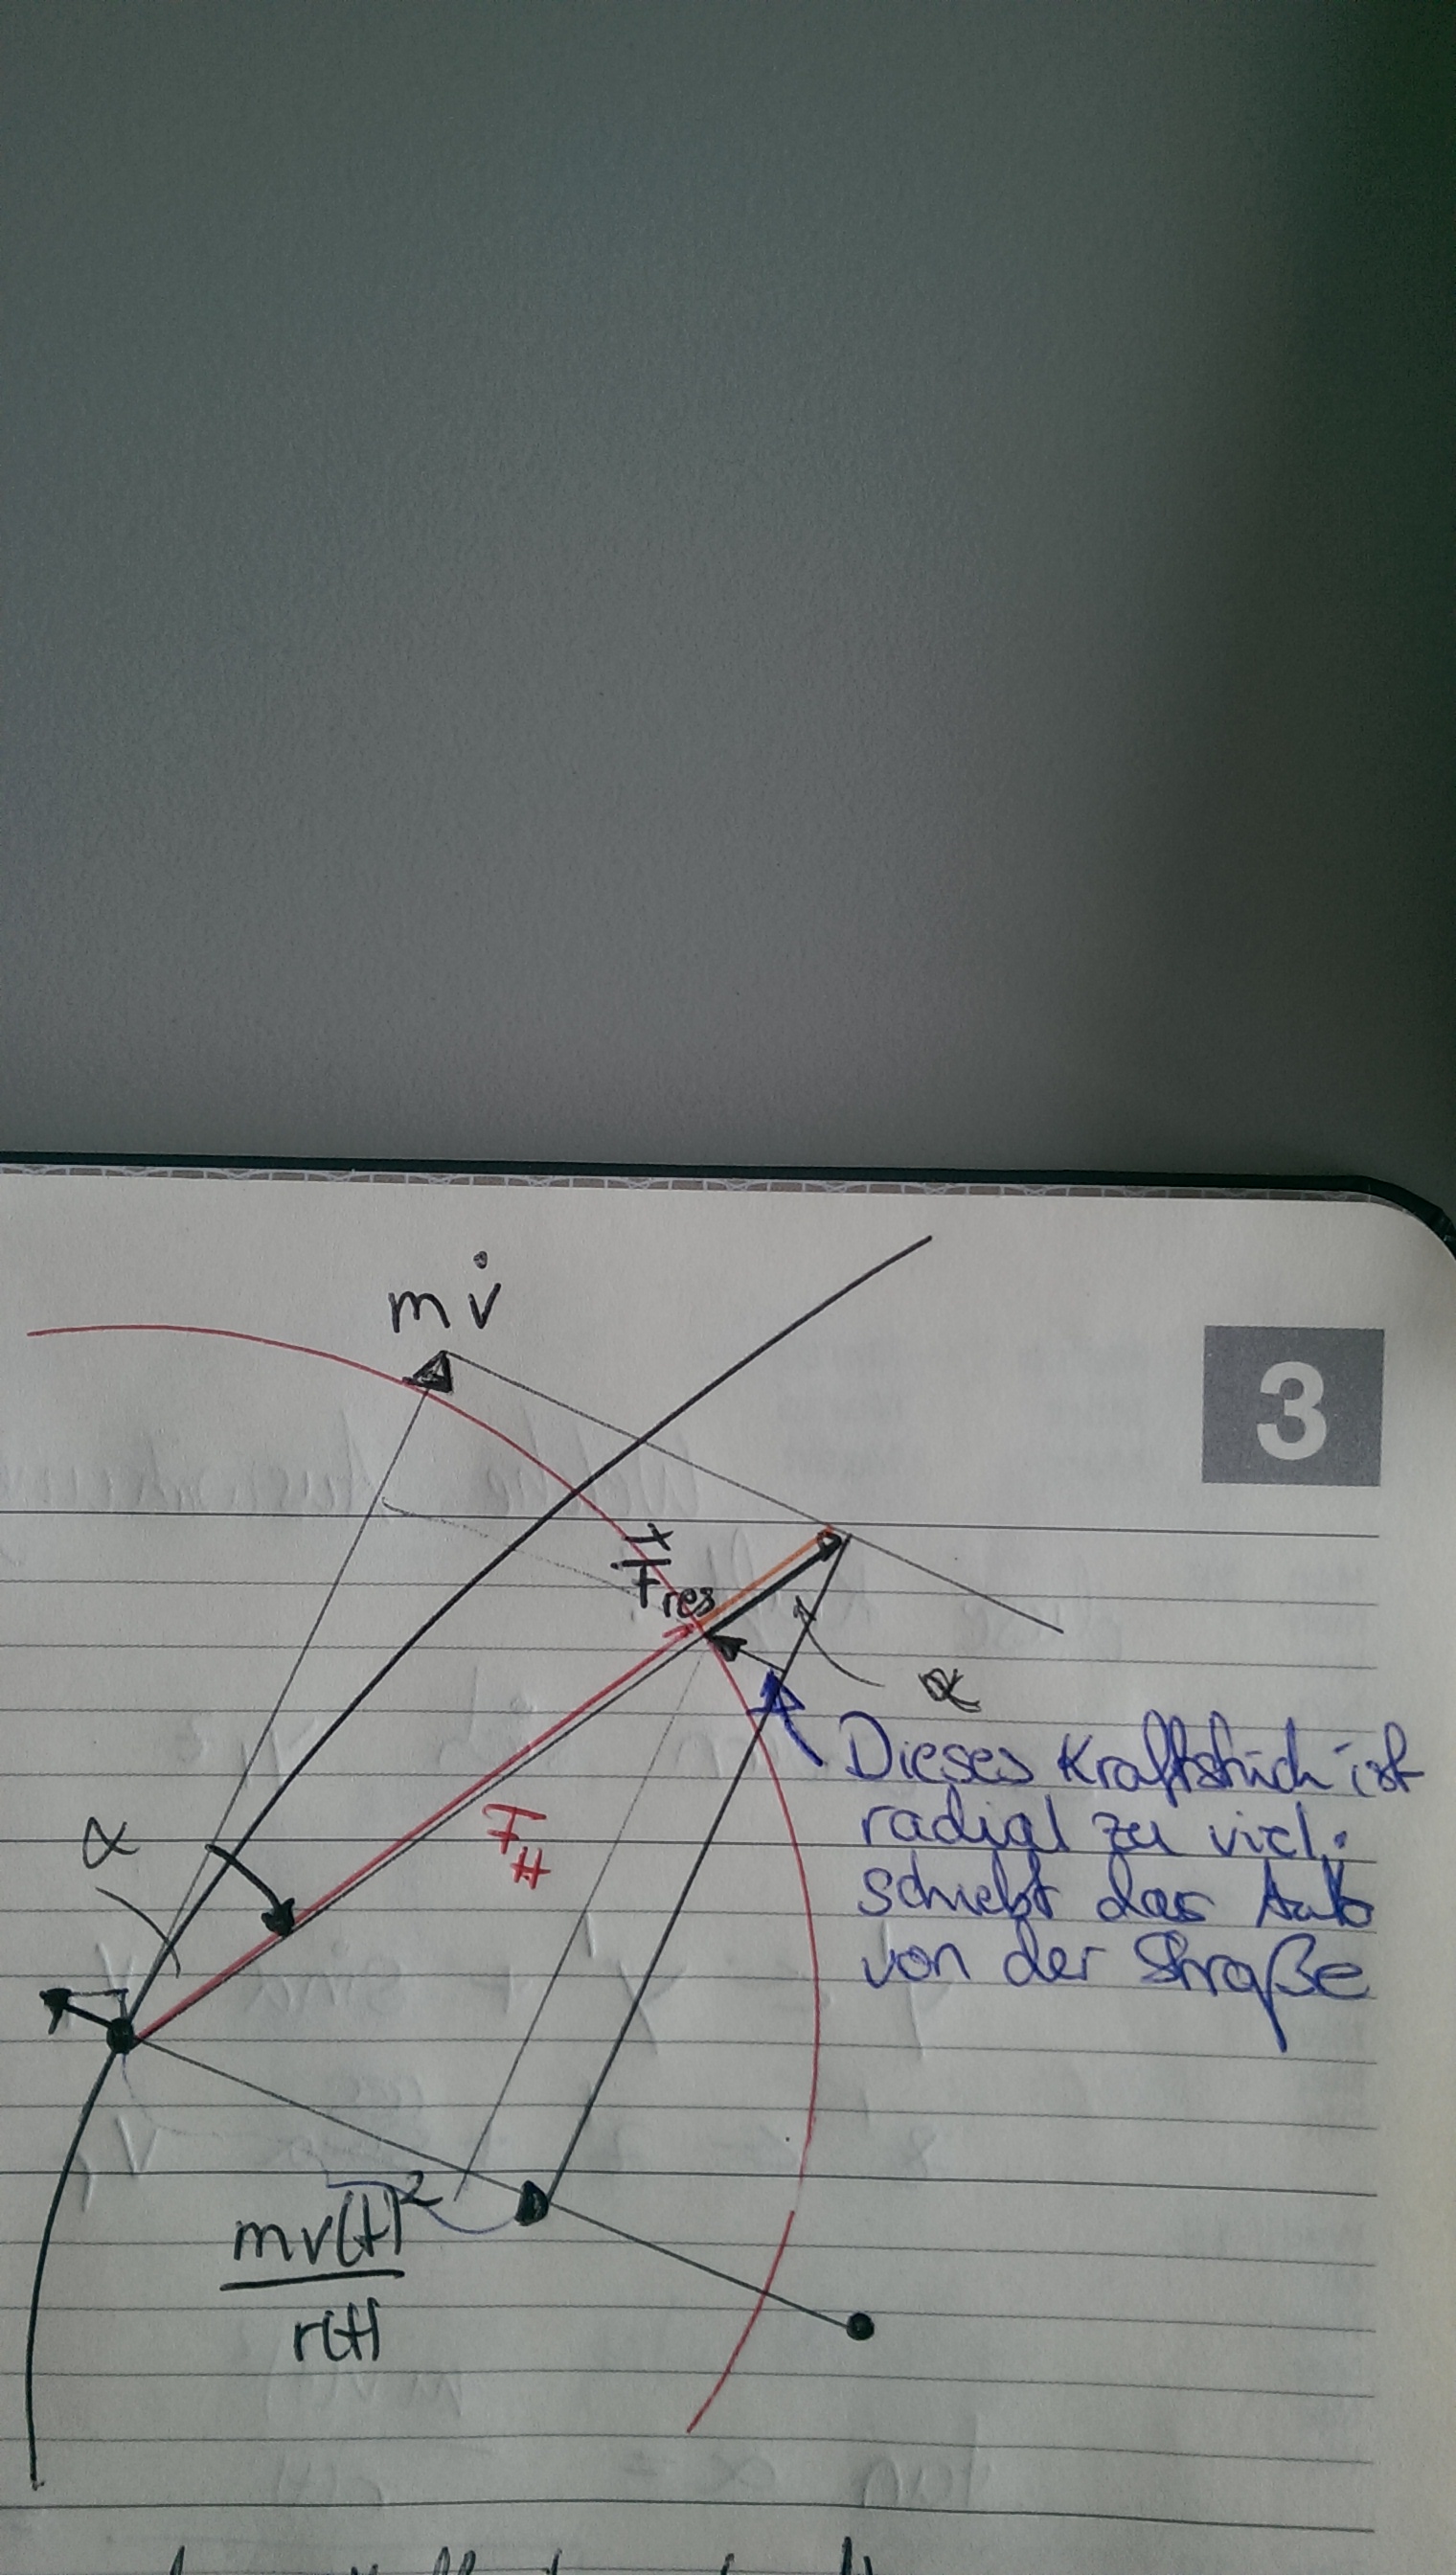 mv̇
3
F_res
α
Dieses Kraftstück ist
radial zu viel:
schiebt das Auto
von der Straße
F_H
α
mv(t)²
r(t)